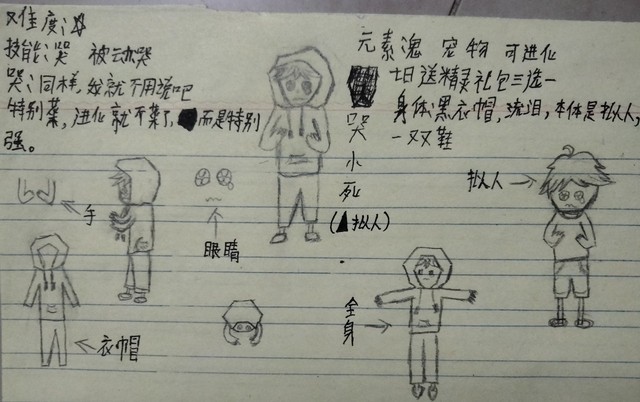 难度
技能:哭 被动哭
哭:同样,这就不用说吧
特别菜,进化就不菜了,而是特别
强。
元素鬼 宠物 可进化
七日送精灵礼包三选一
身体:黑衣帽,流泪,本体是拟人,
一双鞋
哭
小
死
(拟人)
手
眼睛
衣帽
全身
拟人